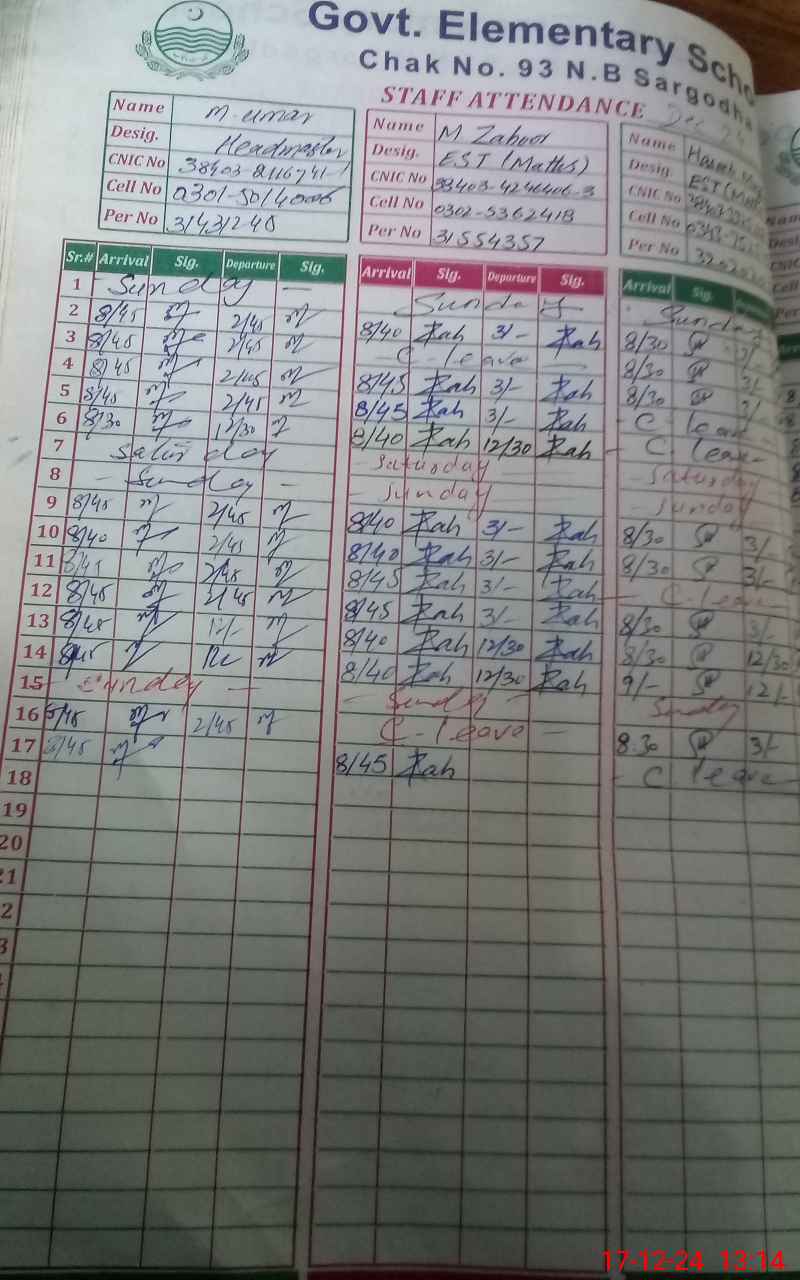 Govt. Elementary Scho
Chak No. 93 N.B Sargodha
STAFF ATTENDANCE
Name M. umar
Desig. Headmaster
CNIC No
Cell No
Per No 31431248
Name M Zahoor
Desig. EST (Maths)
CNIC No 33403-4246406-3
Cell No 0302-5362418
Per No 31554357
Name
Desig. EST
CNIC No
Cell No
Per No
Sr.# Arrival Sig. Departure Sig. Arrival Sig. Departure Sig. Arrival Sig.
1 - Sunday - Sunday - Sunday
2 8/45 2/45 8/40 Zah 3/- Zah 8/30 3/-
3 8/45 2/45 C-leave - 8/30 3/-
4 8/45 2/45 8/45 Zah 3/- Zah 8/30
5 8/45 2/45 8/45 Zah 3/- Zah - C leave
6 8/30 12/30 8/40 Zah 12/30 Zah - C leave
7 Saturday - Saturday - Saturday
8 - Sunday - - Sunday - Sunday
9 8/45 2/45 8/40 Zah 3/- Zah 8/30 3/-
10 8/40 2/45 8/40 Zah 3/- Zah 8/30 3/-
11 8/45 2/45 8/45 Zah 3/- Zah - C-leave
12 8/45 2/45 8/45 Zah 3/- Zah 8/30 3/-
13 8/45 12/- 8/40 Zah 12/30 Zah 8/30 12/30
14 8/45 8/40 Zah 12/30 Zah 9/- 12/-
15 - Sunday - - Sunday - Sunday
16 8/45 2/45 C-leave - 8:30 3/-
17 8/45 8/45 Zah - C leave
18
19
20
21
2
3
17-12-24 13:14